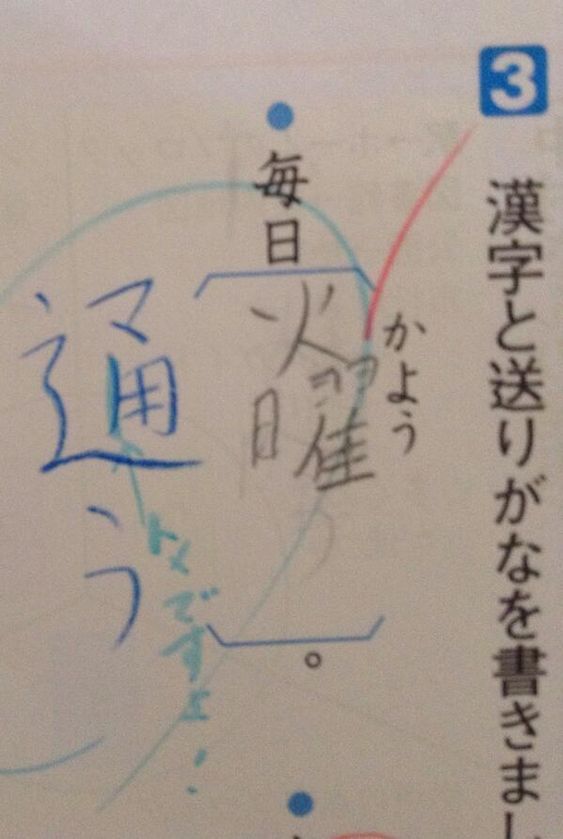 3 漢字と送りがなを書きまし
かよう
毎日
火曜
。
通う
トメですよ!